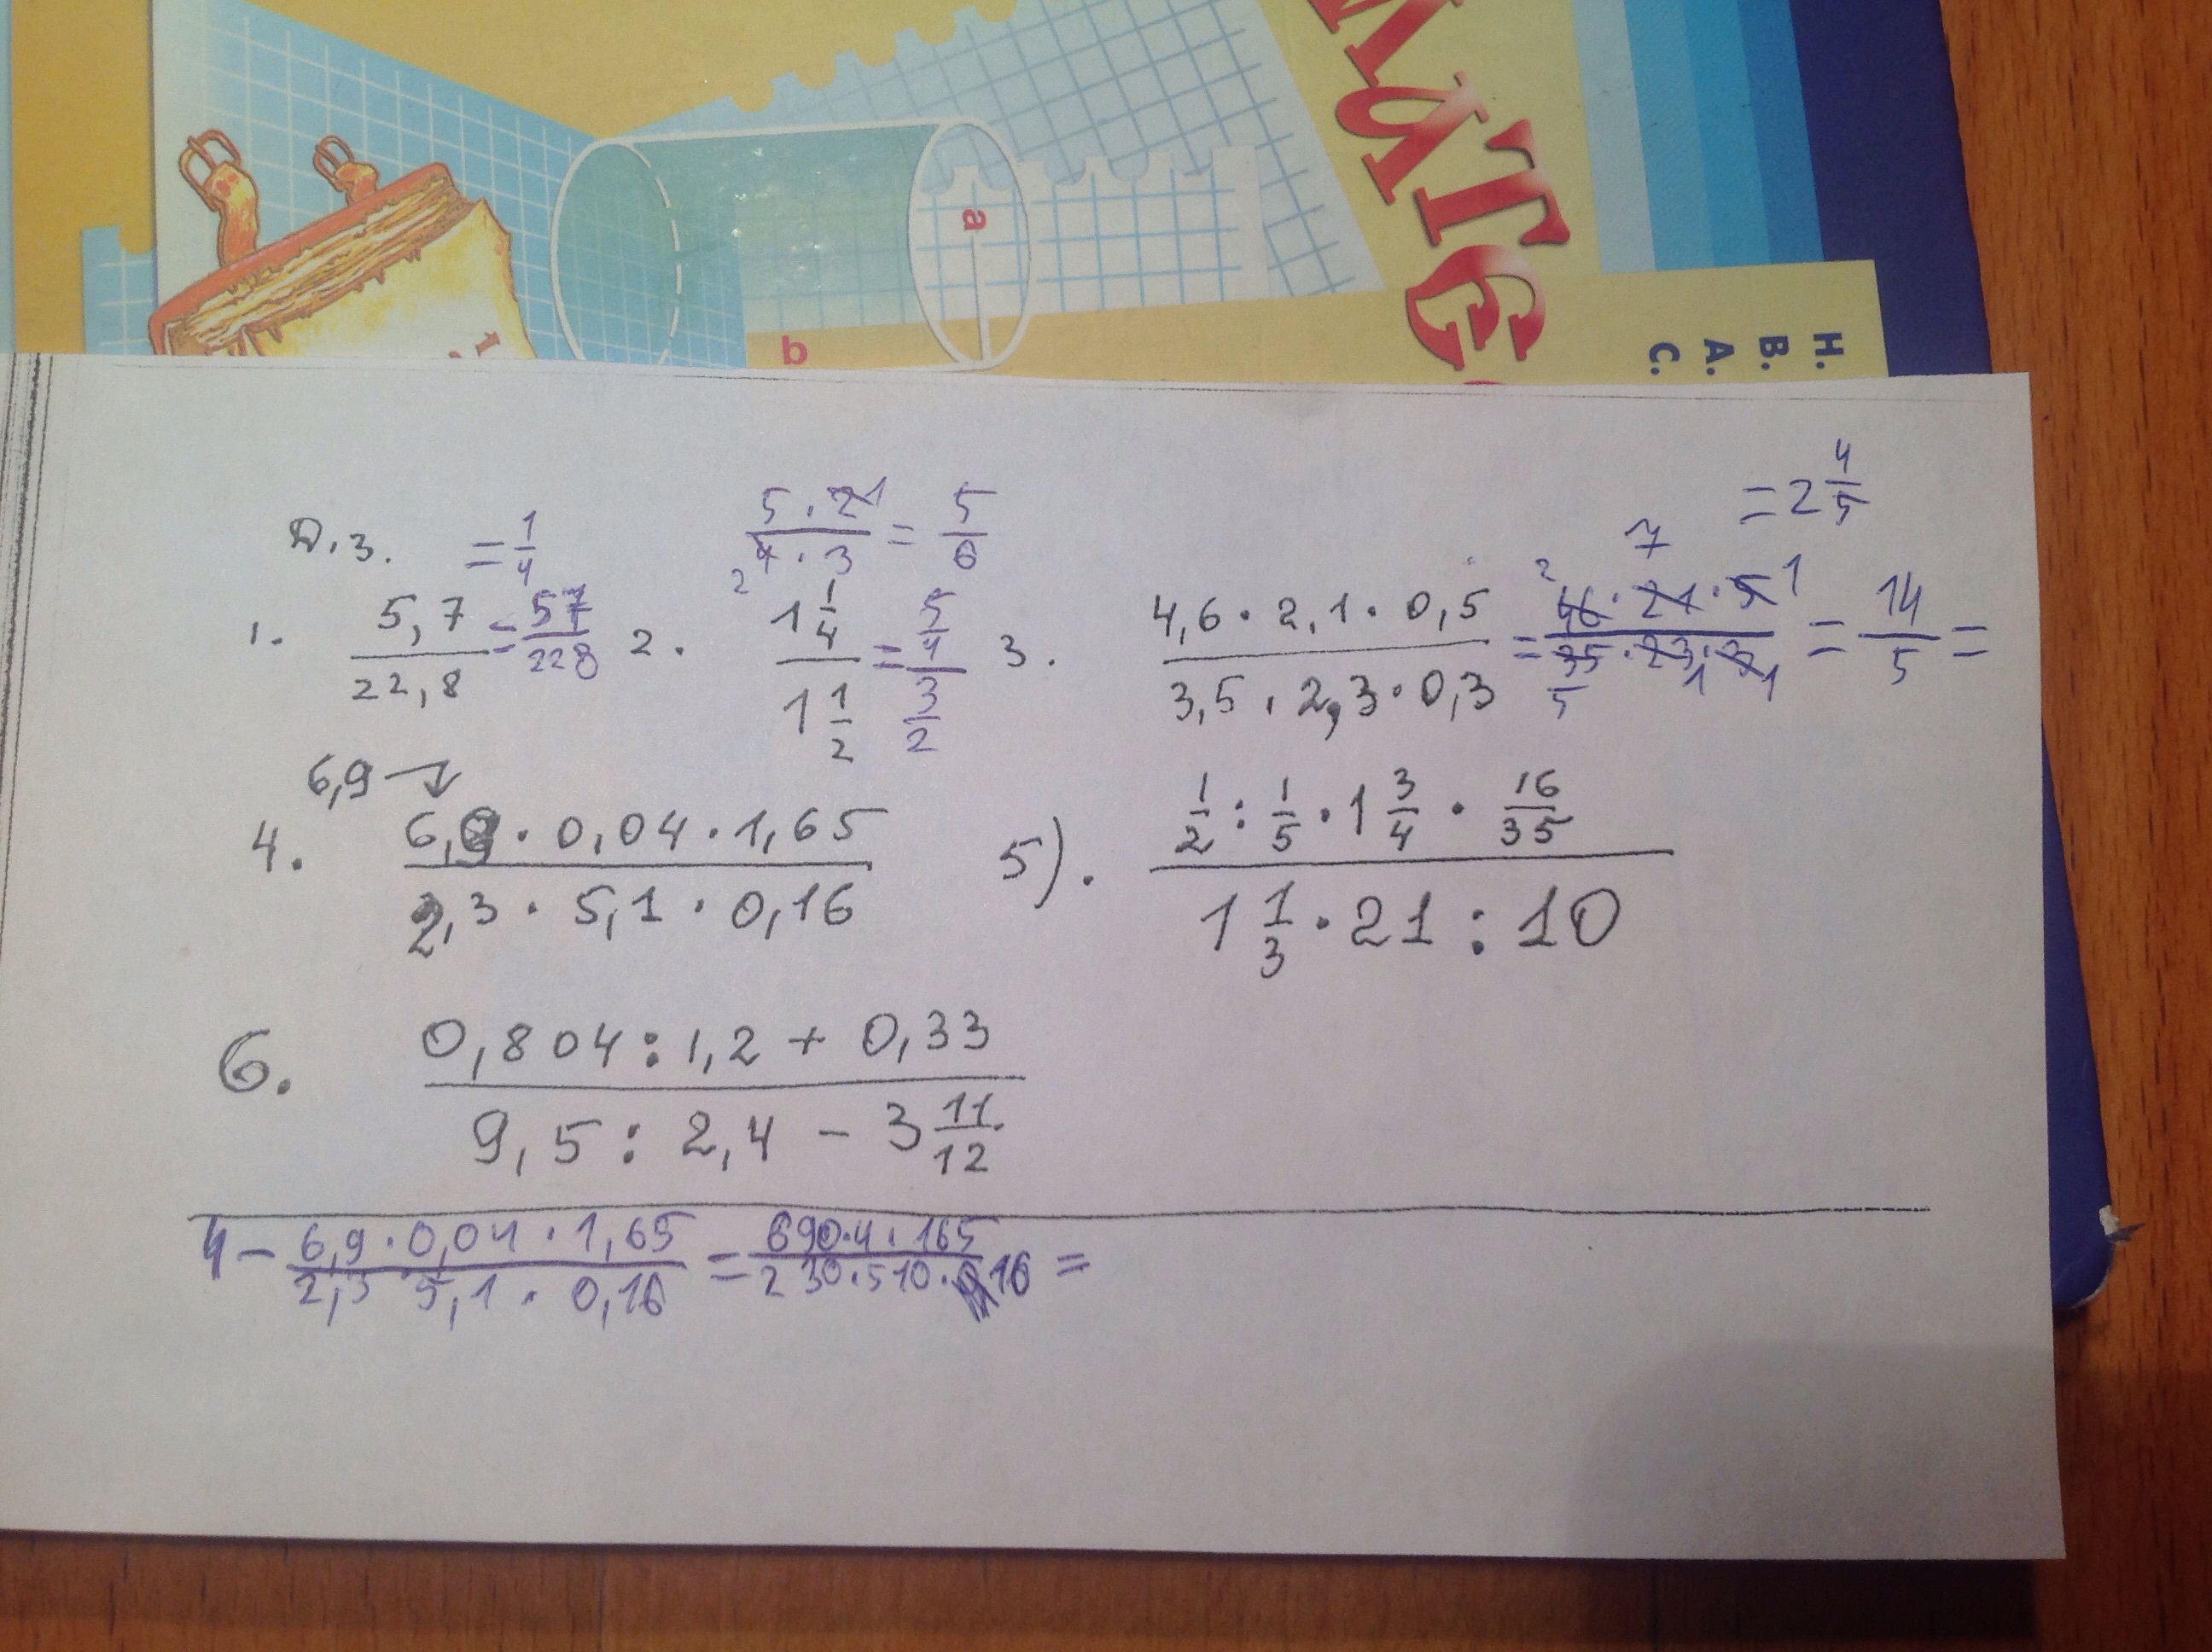 МАТЕ
Н.
В.
А.
С.
a
b
Д.з.
1. 5,7/22,8 = 57/228 = 1/4
2. 1 1/4 / 1 1/2 = 5/4 / 3/2
5 · 2 1 / 2 4 · 3 = 5/6
3. 4,6 · 2,1 · 0,5 / 3,5 · 2,3 · 0,3 = 2 46 · 7 21 · 5 1 / 5 35 · 23 1 · 3 1 = 14/5 =
= 2 4/5
6,9 →
4. 6,9 · 0,04 · 1,65 / 2,3 · 5,1 · 0,16
5). 1/2 : 1/5 · 1 3/4 · 16/35 / 1 1/3 · 21 : 10
6. 0,804 : 1,2 + 0,33 / 9,5 : 2,4 − 3 11/12
4 − 6,9 · 0,04 · 1,65 / 2,3 · 5,1 · 0,16 = 690 · 4 · 165 / 230 · 510 · 16 =